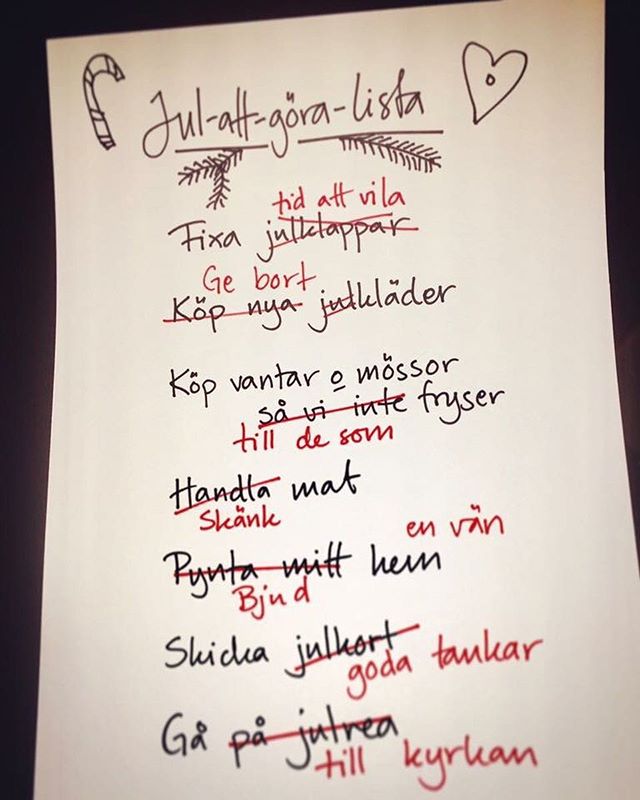 Jul-att-göra-lista
tid att vila
Fixa julklappar
Ge bort
Köp nya julkläder
Köp vantar o mössor
så vi inte fryser
till de som
Handla mat
Skänk
en vän
Pynta mitt hem
Bjud
Skicka julkort
goda tankar
Gå på julrea
till kyrkan